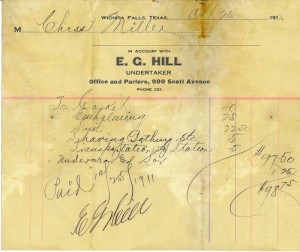 WICHITA FALLS, TEXAS, 191
M Chas Miller
IN ACCOUNT WITH
E. G. HILL
UNDERTAKER
Office and Parlors, 900 Scott Avenue
PHONE 225
To Casket 40
Embalming 25
22.50
Shaving Bathing Etc 5
Transportation to Station 5
$97.50
1.25
$98.75
Paid 25 1911
E G Hill